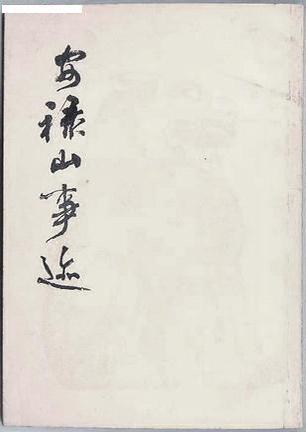 安禄山事迹